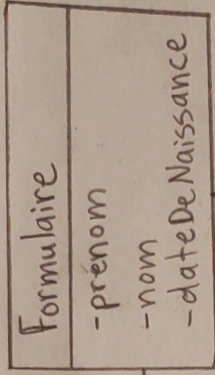 Formulaire
-prénom
-nom
-dateDeNaissance